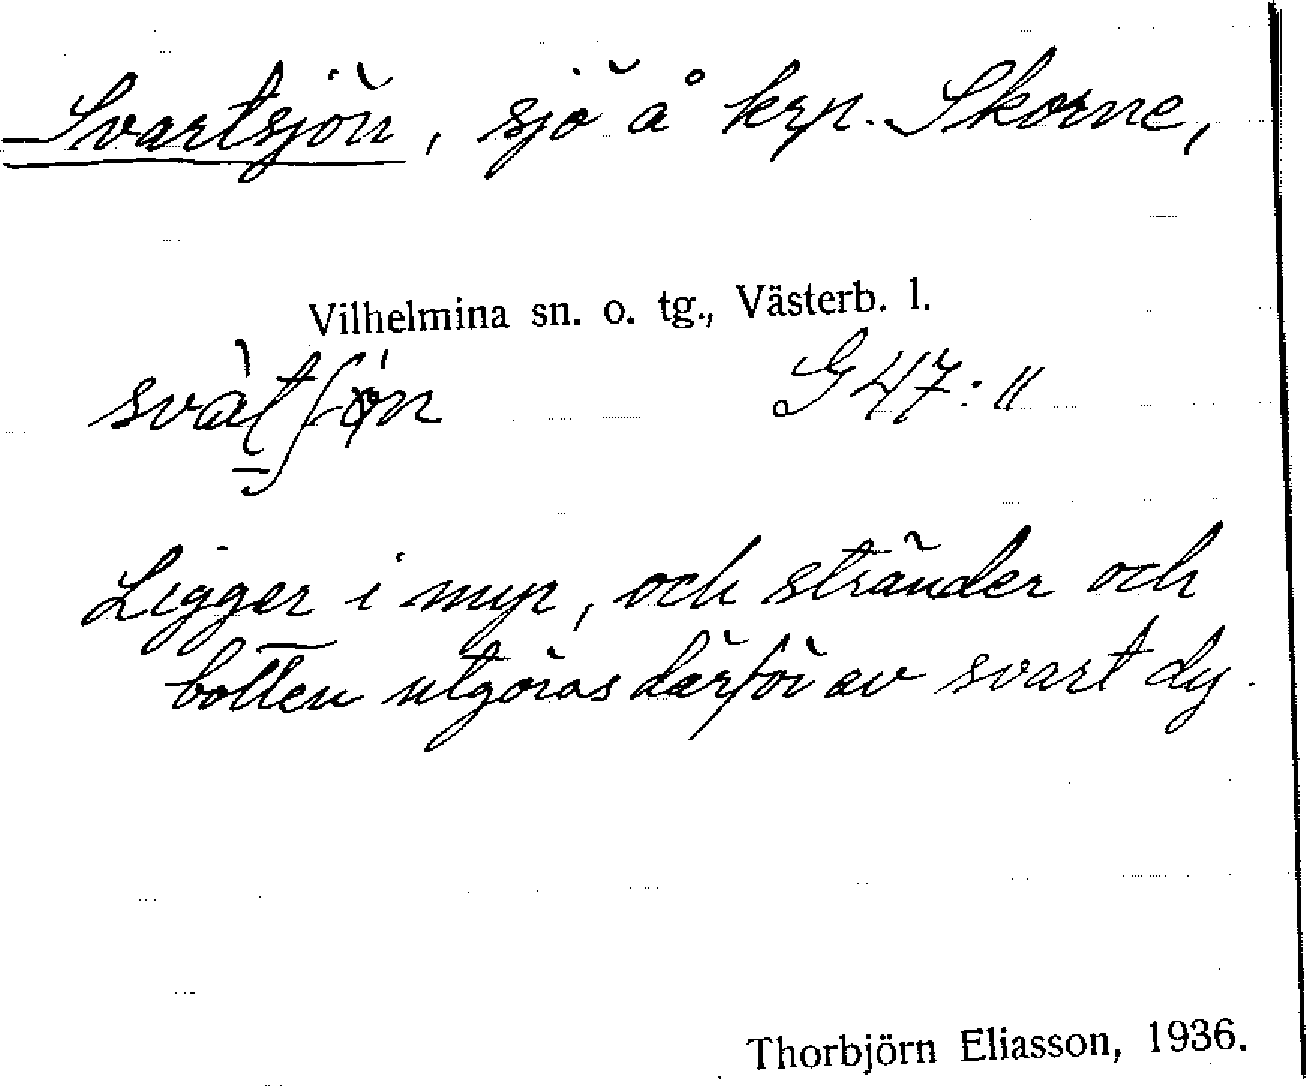 Svartsjön, sjö å krp. Skorne,
Vilhelmina sn. o. tg., Västerb. l.
G 47:11
Ligger i myr, och stränder och
botten utgöras därför av svart dy.
Thorbjörn Eliasson, 1936.